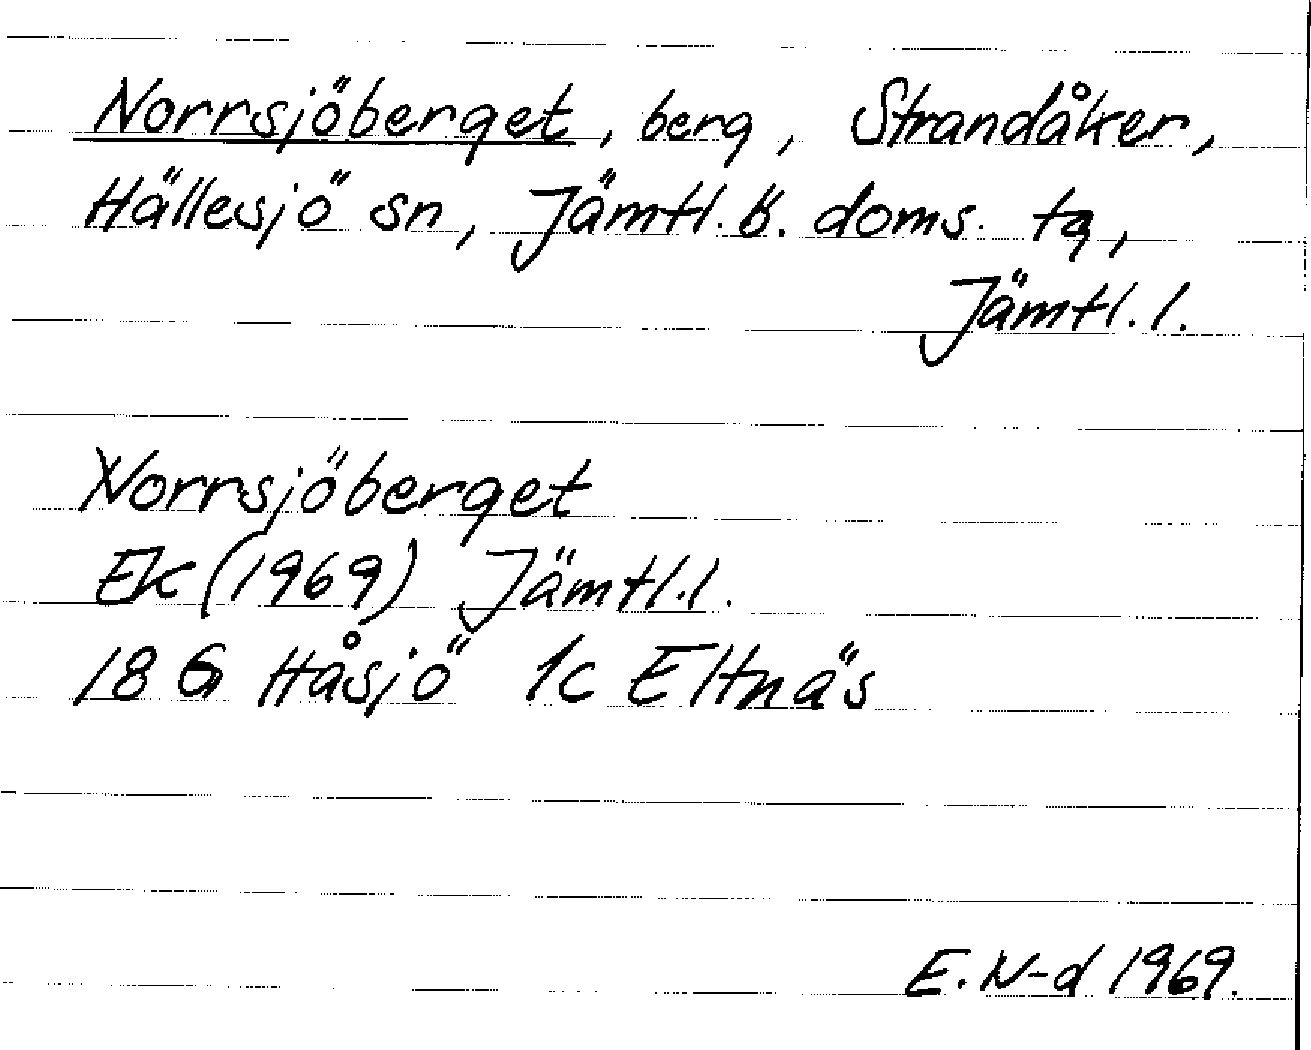 Norrsjöberget, berg, Strandåker,
Hällesjö sn, Jämtl.ö. doms. tg,
Jämtl.l.
Norrsjöberget
Ek (1969) Jämtl.l.
18 G Håsjö 1c Eltnäs
E.N-d 1969.